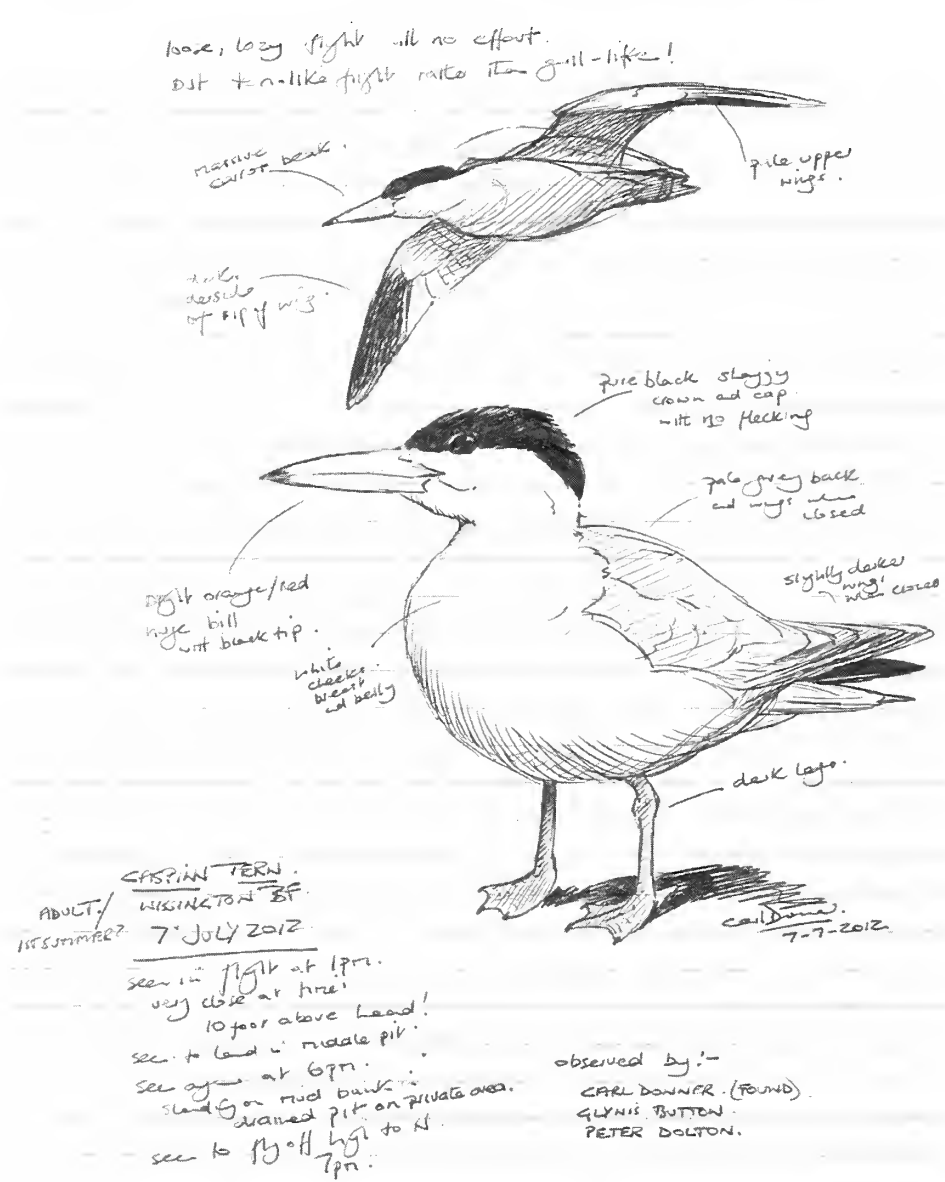 loose, lazy flight with no effort.
Just tern-like flight rather than gull-like!
massive
carrot beak.
pale upper
wings.
dark
underside
of tip of wing.
pure black shaggy
crown and cap
with no flecking
pale grey back
and wings when
closed
slightly darker
wings
when closed
bright orange/red
huge bill
with black tip.
white
cheeks
breast
and belly
dark legs.
CASPIAN TERN.
ADULT./
WISSINGTON BF.
1ST SUMMER?
7 JULY 2012
Carl Donner.
7-7-2012
seen in flight at 1pm.
very close at times
10 foot above head!
seen to land in middle pit.
seen again at 6pm.
standing on mud bank in
drained pit on private area.
seen to fly off high to N.
7pm.
observed by:-
CARL DONNER. (FOUND)
GLYNIS BUTTON.
PETER DOLTON.